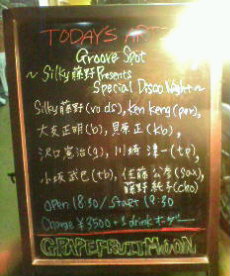 TODAY'S ART
Groove Spot
～Silky藤野Presents
Special Disco Night～
Silky藤野(vo ds), Ken Keng(per),
大友正明(b), 貝原正(kb),
沢口寛治(g), 川崎淳一(tp),
小坂武巳(tb), 佐藤公彦(sax),
藤野純子(cho)
Open 18:30/Start 19:30
Charge ¥3500+1drinkオーダー
GRAPEFRUIT MOON